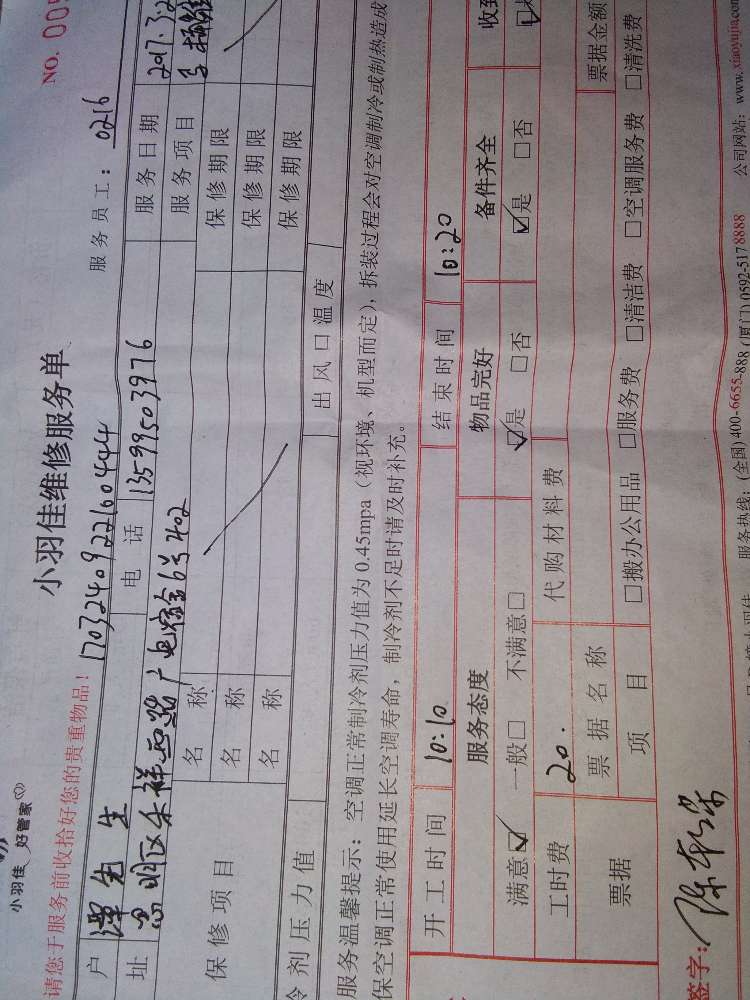 小羽佳 好管家
小羽佳维修服务单
NO. 005
请您于服务前收拾好您的贵重物品! 1703240922160444
服务员工: 0216
户 先生 电话 13599503976 服务日期 2017.3.2
址 思明区 禾祥西路 广电宿舍6号402 服务项目
保修项目 名称 保修期限
名称 保修期限
名称 保修期限
冷剂压力值 出风口温度
服务温馨提示: 空调正常制冷剂压力值为0.45mpa (视环境、机型而定), 拆装过程会对空调制冷或制热造成
保空调正常使用延长空调寿命, 制冷剂不足时请及时补充。
开工时间 10:10 结束时间 10:20
服务态度 物品完好 备件齐全 收到
满意☑ 一般□ 不满意□ ☑是 □否 ☑是 □否
工时费 20. 代购材料费
票据 票据名称 票据金额
项目 □搬办公用品 □服务费 □清洁费 □空调服务费 □清洗费
签字:
服务热线: (全国) 400-6655-888 (厦门) 0592-5178888 公司网站: www.xiaoyujia.com